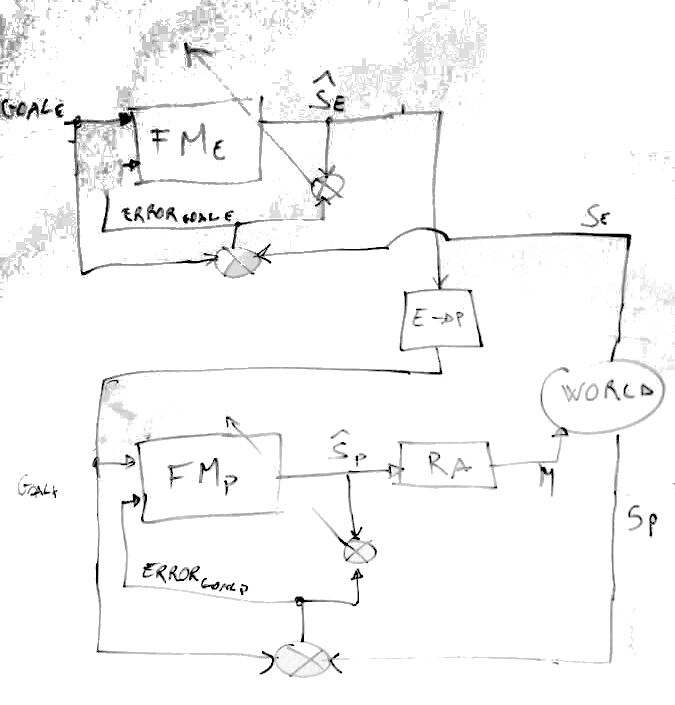 GOALE
FME
ŜE
ERRORGOALE
SE
E→P
WORLD
GOALP
FMP
ŜP
RA
M
SP
ERRORGOALP